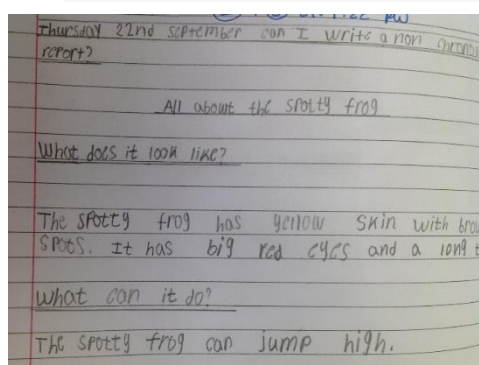 Thursday 22nd September can I write a non
report?
All about the spotty frog
What does it look like?
The spotty frog has yellow skin with
spots. It has big red eyes and a long
What can it do?
The spotty frog can jump high.